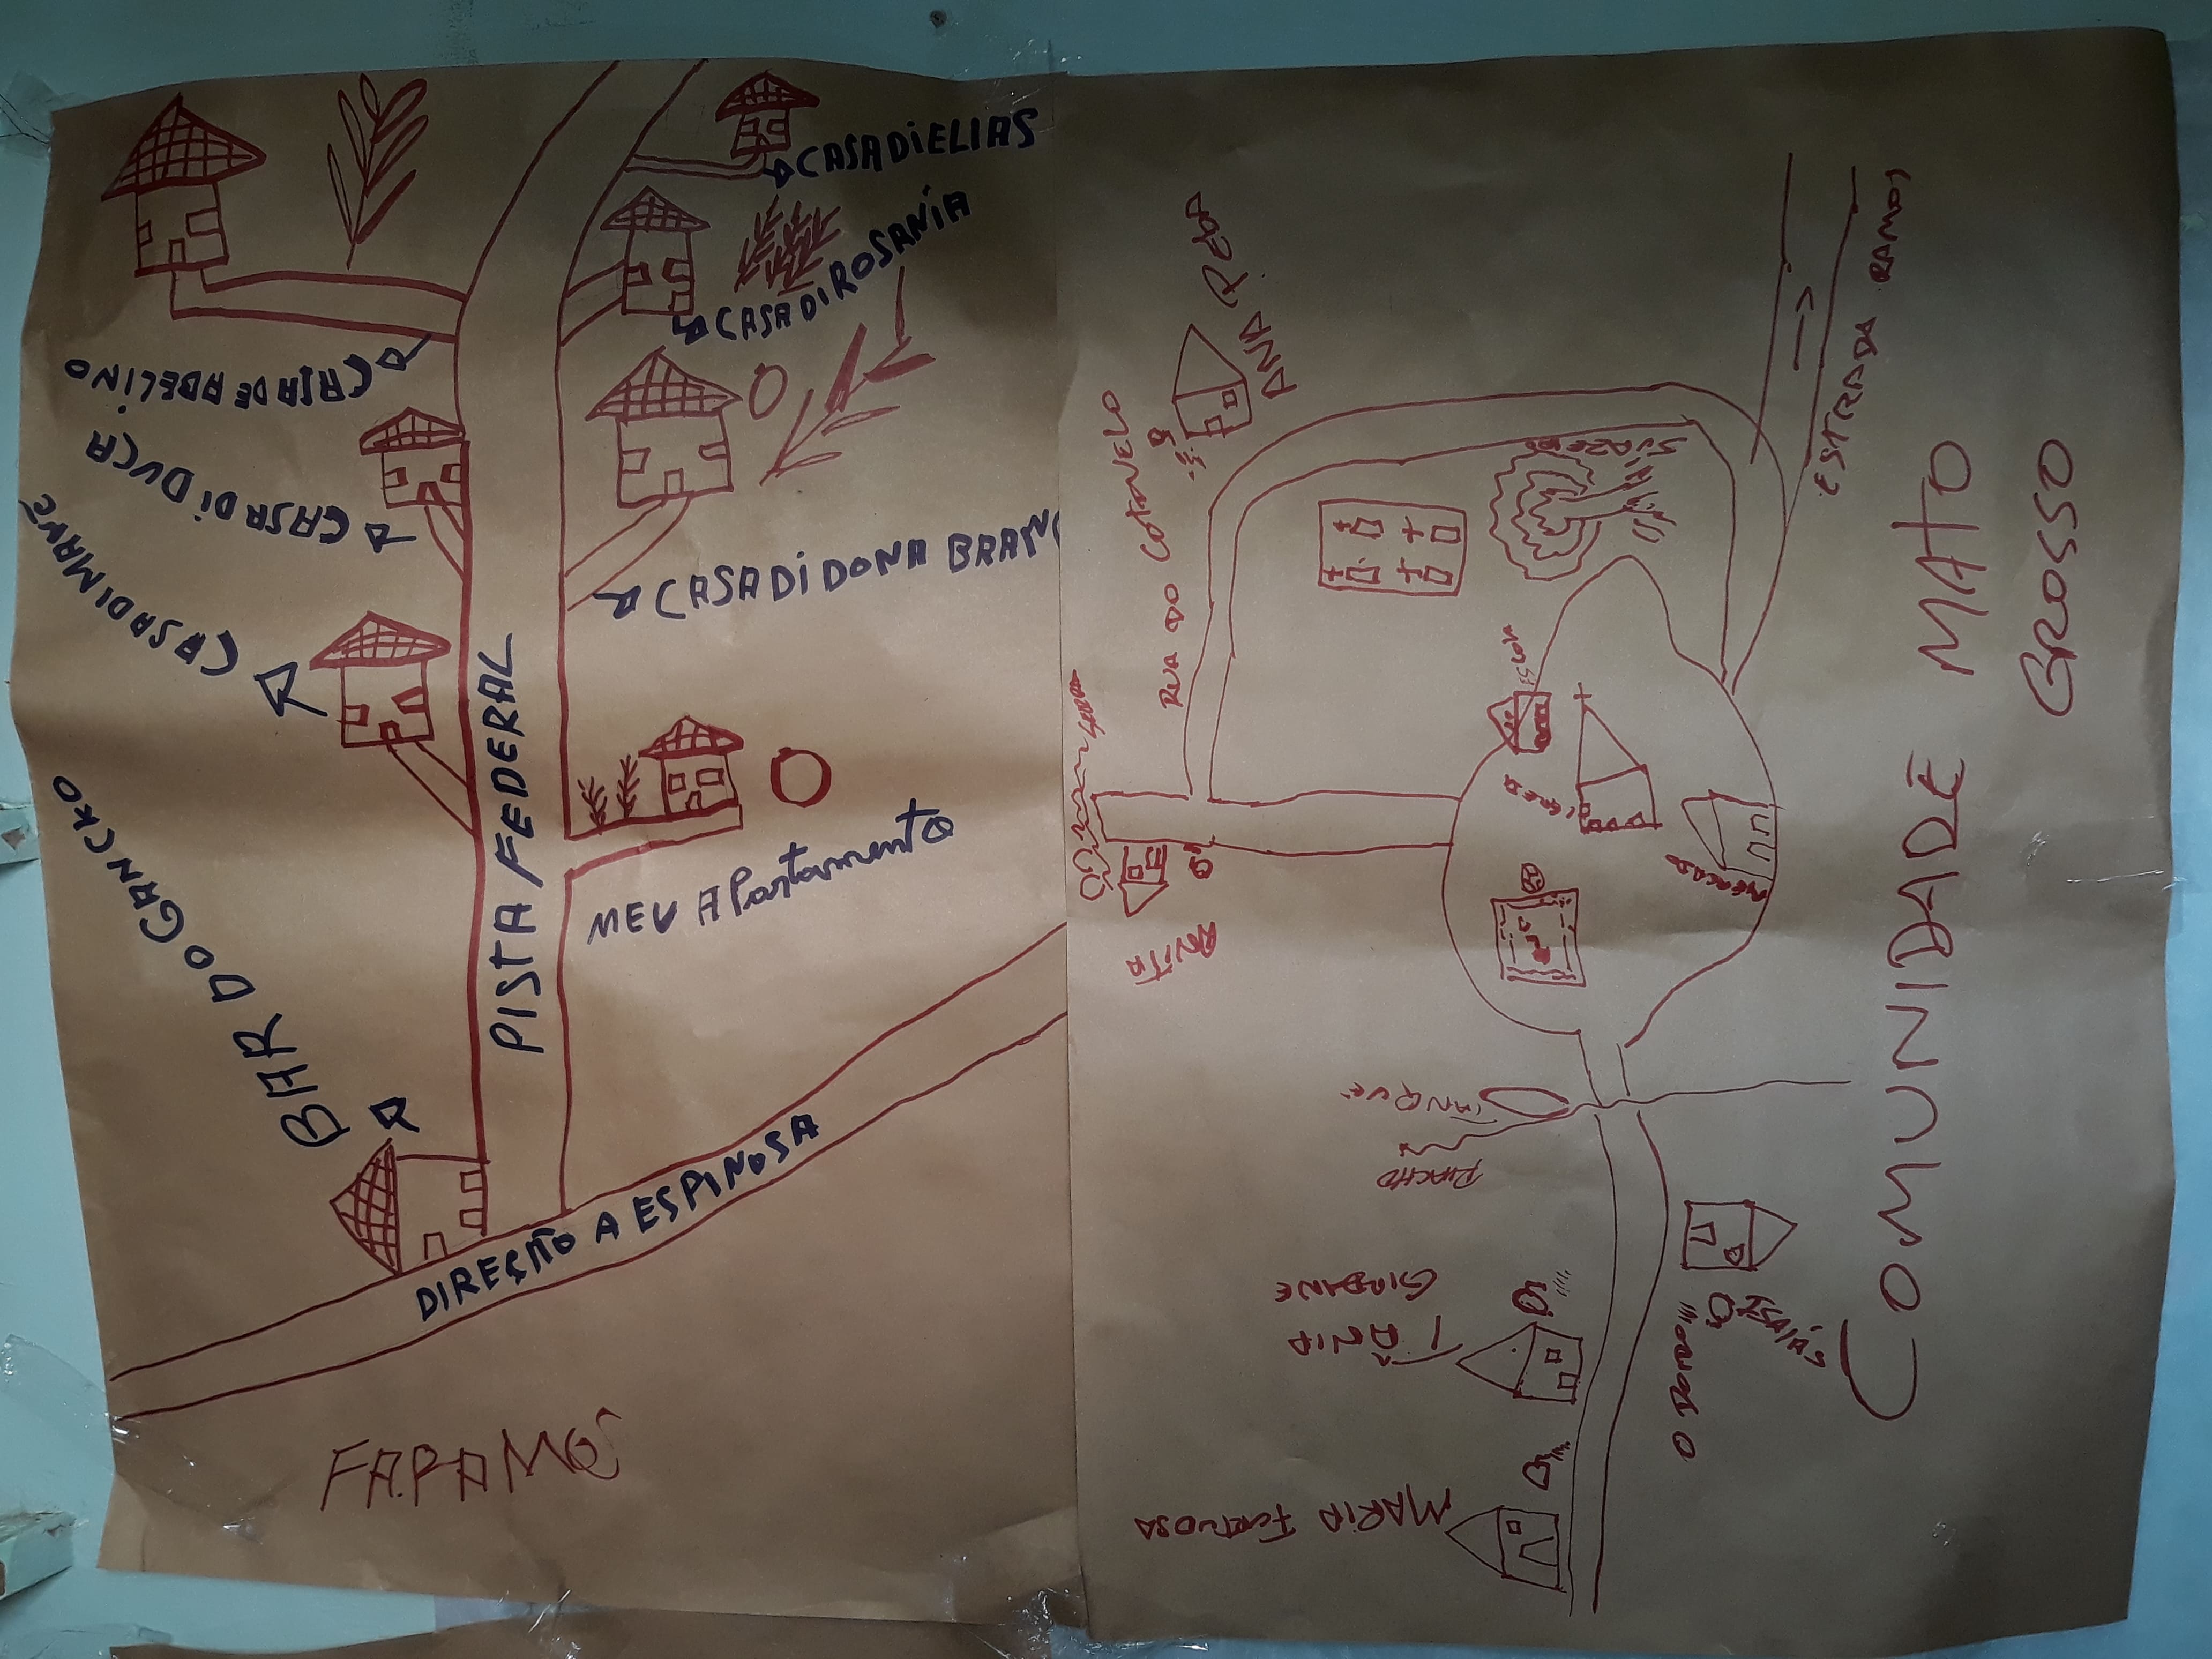 CASA DI ELIAS
CASA DI ROSANIA
CASA DE ADELINO
CASA DI DUCA
CASA DI MANÉ
CASA DI DONA BRANC
PISTA FEDERAL
MEU APartamento
BAR DO GANCHO
DIREÇÃO A ESPINOSA
ANA RETA
RUA DO COTOVELO
ESTRADA RAMOS
ESCOLA
SERRA
ANITA
TANQUE
RIACHO
MARIA FORMOSA
COMUNIDADE MATO
GROSSO